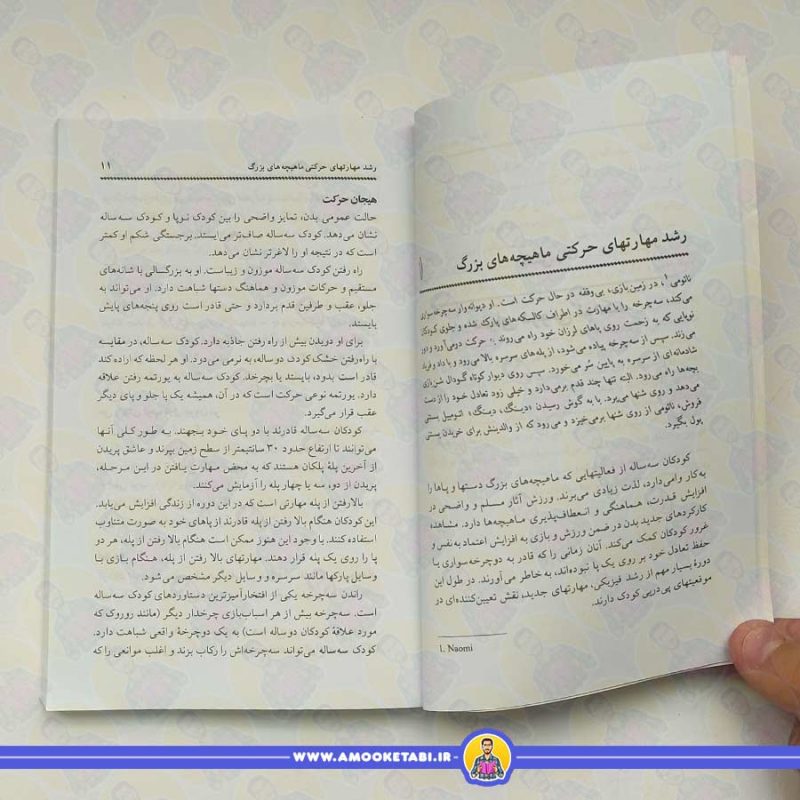 رشد مهارتهای حرکتی ماهیچه‌های بزرگ
نائومی۱، در زمین‌بازی، بی‌وقفه در حال حرکت است. او دیوانه‌وار سه‌چرخه‌سواری
می‌کند، سه‌چرخه را با مهارت در اطراف کالسکه‌های پارک شده و جلوی کودکان
نوپایی که به زحمت روی پاهای لرزان خود راه می‌روند به حرکت درمی‌آورد و دور
می‌زند. سپس از سه‌چرخه پیاده می‌شود، از پله‌های سرسره بالا می‌رود و با داد و فریاد
شادمانه‌ای از سرسره به پایین سُر می‌خورد. سپس روی دیوار کوتاه گودال شن‌بازی
بچه‌ها راه می‌رود. البته تنها چند قدم برمی‌دارد و خیلی زود تعادل خود را از دست
می‌دهد و روی شنها می‌پرد. با به گوش رسیدن «دینگ، دینگ» اتومبیل بستنی
فروش، نائومی از روی شنها برمی‌خیزد و می‌رود که از والدینش برای خریدن بستنی
پول بگیرد.
کودکان سه‌ساله از فعالیتهایی که ماهیچه‌های بزرگ دستها و پاها را
به‌کار وامی‌دارد، لذت زیادی می‌برند. ورزش آثار مسلم و واضحی در
افزایش قدرت، هماهنگی و انعطاف‌پذیری ماهیچه‌ها دارد. مشاهدهٔ
کارکردهای جدید بدن در ضمن ورزش و بازی به افزایش اعتماد به نفس و
غرور کودکان کمک می‌کند. آنان زمانی را که قادر به دوچرخه‌سواری یا
حفظ تعادل خود بر روی یک پا نبوده‌اند، به خاطر می‌آورند. در طول این
دورهٔ بسیار مهم از رشد فیزیکی، مهارتهای جدید، نقش تعیین‌کننده‌ای در
موقعیتهای پی‌درپی کودک دارند.
1. Naomi
رشد مهارتهای حرکتی ماهیچه‌های بزرگ ۱۱
هیجان حرکت
حالت عمومی بدن، تمایز واضحی را بین کودک نوپا و کودک سه‌ساله
نشان می‌دهد. کودک سه‌ساله صاف‌تر می‌ایستد. برجستگی شکم او کمتر
است که در نتیجه او را لاغرتر نشان می‌دهد.
راه رفتن کودک سه‌ساله موزون و زیباست. او به بزرگسالی با شانه‌های
مستقیم و حرکات موزون و هماهنگ دستها شباهت دارد. او می‌تواند به
جلو، عقب و طرفین قدم بردارد و حتی قادر است روی پنجه‌های پایش
بایستد.
برای او دویدن بیش از راه رفتن جاذبه دارد. کودک سه‌ساله، در مقایسه
با راه‌رفتن خشک کودک دوساله، به نرمی می‌دود. او هر لحظه که اراده کند
قادر است بدود، بایستد یا بچرخد. کودک سه‌ساله به یورتمه رفتن علاقه
دارد. یورتمه نوعی حرکت است که در آن، همیشه یک پا جلو و پای دیگر
عقب قرار می‌گیرد.
کودکان سه‌ساله قادرند با دو پای خود بجهند. به طور کلی آنها
می‌توانند تا ارتفاع حدود ۳۰ سانتیمتر از سطح زمین بپرند و عاشق پریدن
از آخرین پلهٔ پلکان هستند که به محض مهارت یافتن در این مرحله،
پریدن از دو، سه یا چهار پله را آزمایش می‌کنند.
بالارفتن از پله مهارتی است که در این دوره از زندگی افزایش می‌یابد.
این کودکان هنگام بالا رفتن از پله قادرند از پاهای خود به صورت متناوب
استفاده کنند. با وجود این هنوز ممکن است هنگام بالا رفتن از پله، هر دو
پا را روی یک پله قرار دهند. مهارتهای بالا رفتن از پله، هنگام بازی با
وسایل پارکها مانند سرسره و وسایل دیگر مشخص می‌شود.
راندن سه‌چرخه یکی از افتخارآمیزترین دستاوردهای کودک سه‌ساله
است. سه‌چرخه بیش از هر اسباب‌بازی چرخدار دیگر (مانند روروک که
مورد علاقهٔ کودکان دوساله است) به یک دوچرخهٔ واقعی شباهت دارد.
کودک سه‌ساله می‌تواند سه‌چرخه‌اش را رکاب بزند و اغلب موانعی را که
WWW.AMOOKETABI.IR